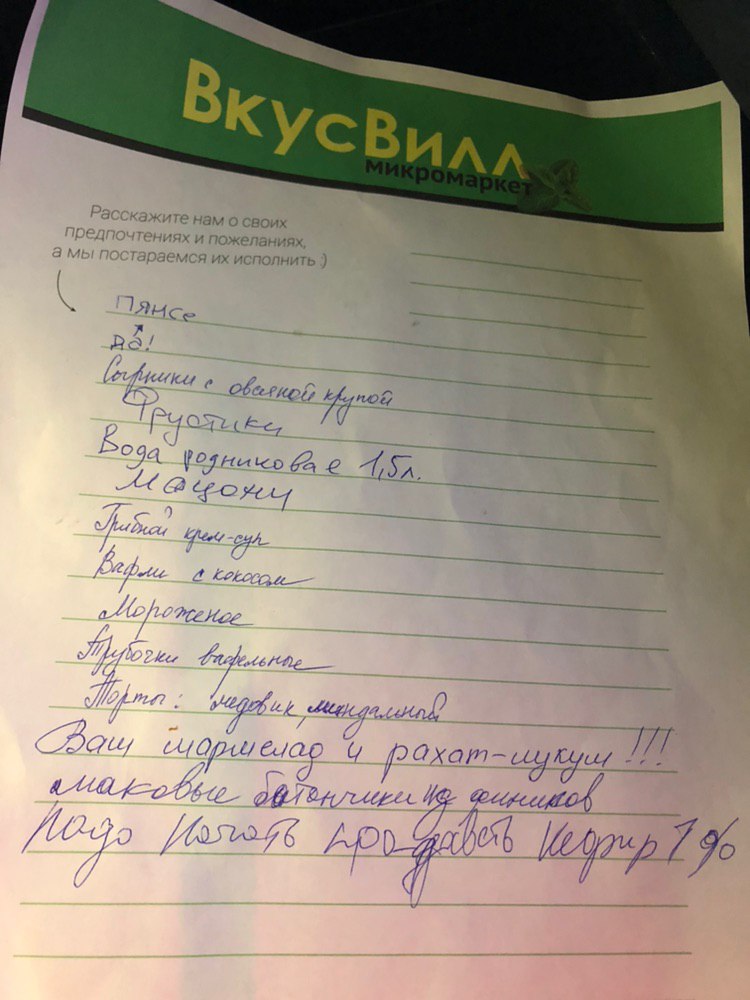 ВкусВилл
микромаркет
Расскажите нам о своих
предпочтениях и пожеланиях,
а мы постараемся их исполнить :)
Пянсе
да!
Сырники с овсяной крупой
Фрустики
Вода родниковая 1,5л.
Мацони
Грибной крем-суп
Вафли с кокосом
Мороженое
Трубочки вафельные
Торты: медовик, миндальный
Ваш мармелад и рахат-лукум!!!
маковые батончики из фиников
Надо начать продавать кефир 1%